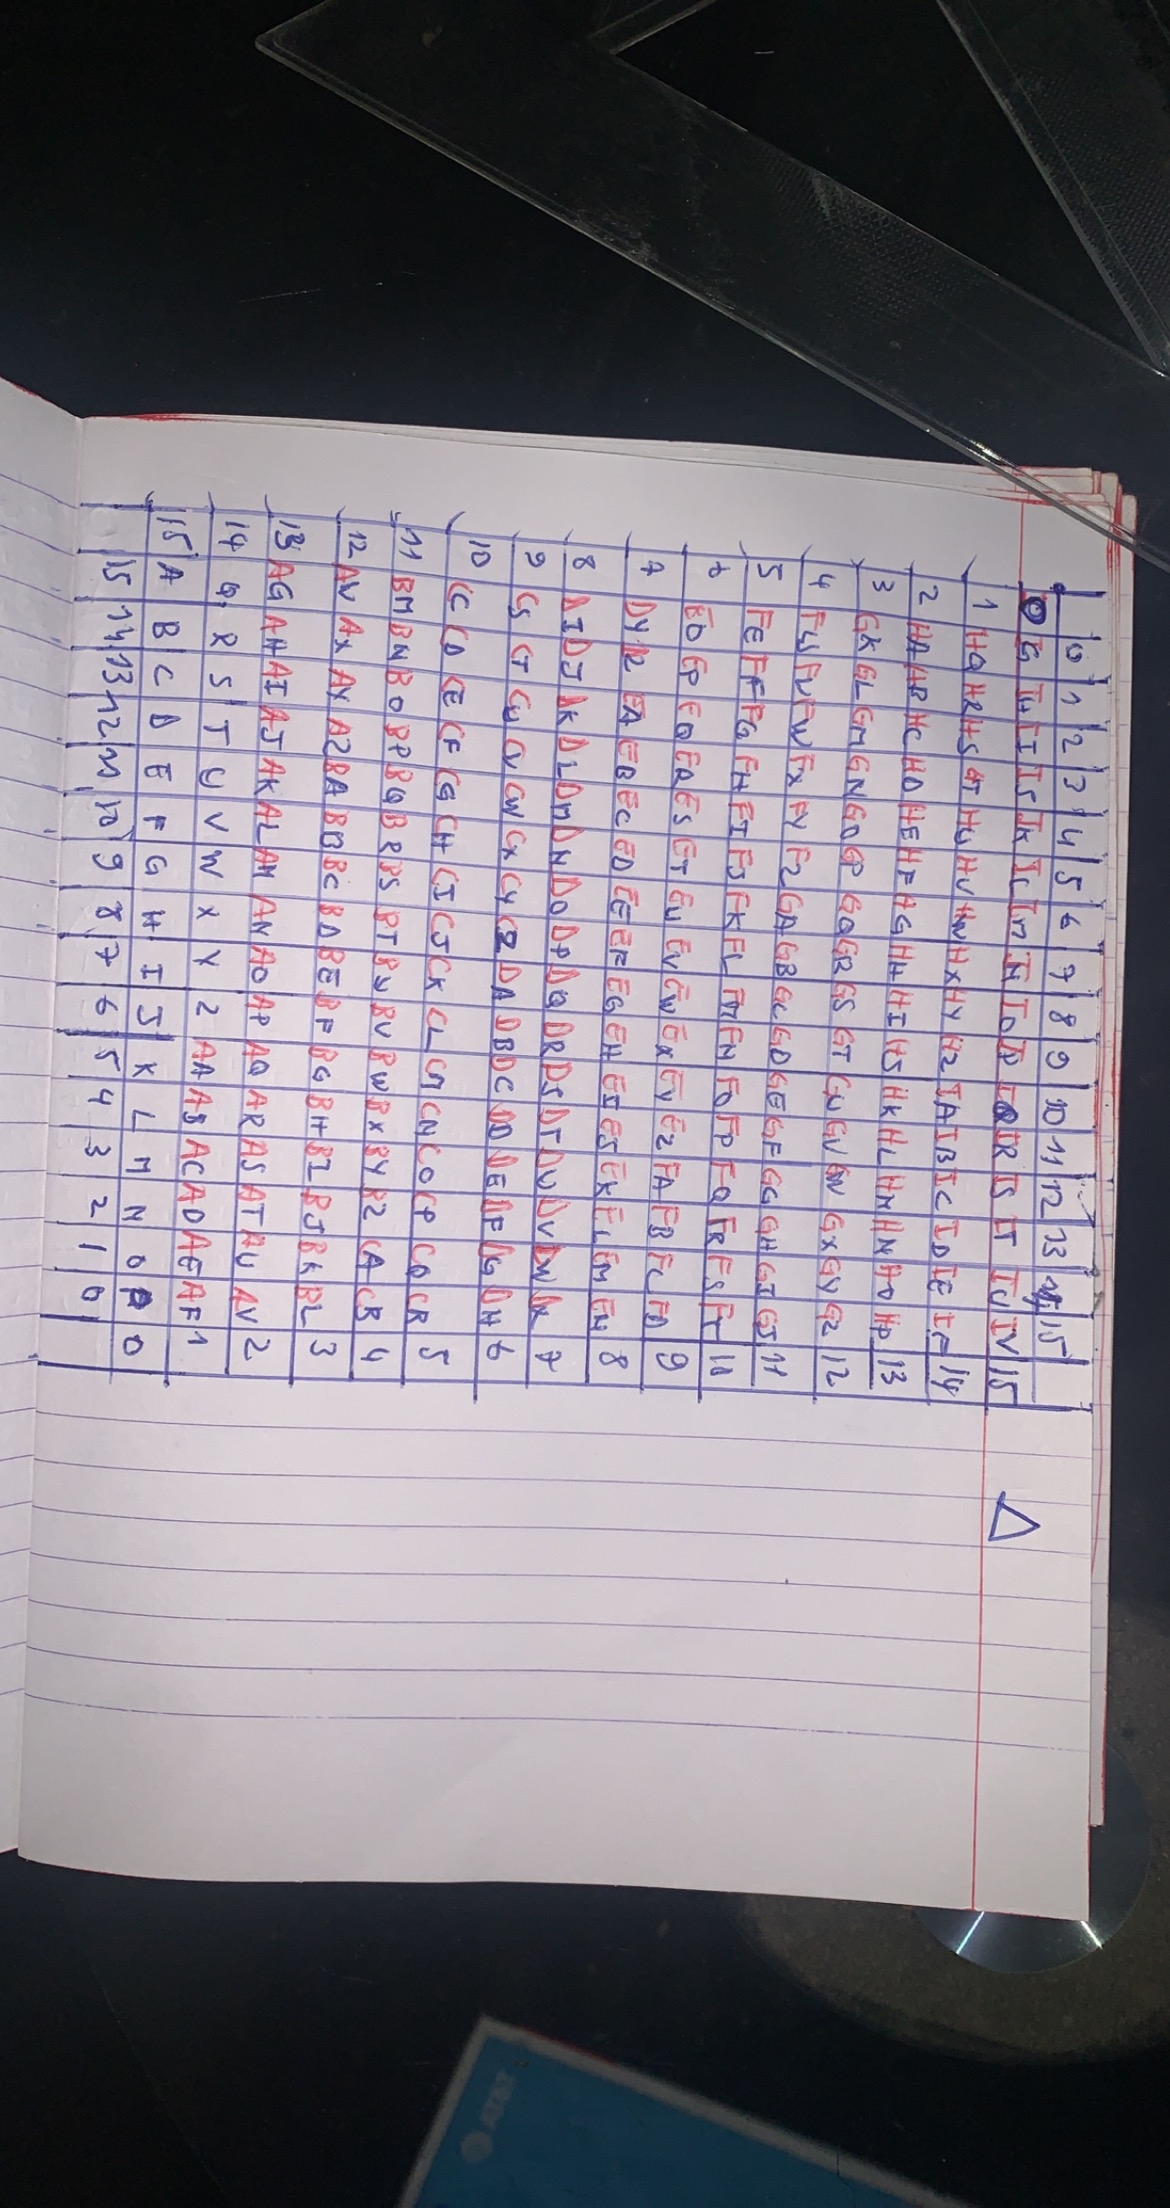 0 1 2 3 4 5 6 7 8 9 10 11 12 13 14 15
0 IG IH II IJ IK IL IM IN IO IP IQ IR IS IT IU IV 15
1 HQ HR HS HT HU HV HW HX HY HZ IA IB IC ID IE IF 14
2 HA HB HC HD HE HF HG HH HI HJ HK HL HM HN HO HP 13
3 GK GL GM GN GO GP GQ GR GS GT GU GV GW GX GY GZ 12
4 FU FV FW FX FY FZ GA GB GC GD GE GF GG GH GI GJ 11
5 FE FF FG FH FI FJ FK FL FM FN FO FP FQ FR FS FT 10
6 EO EP EQ ER ES ET EU EV EW EX EY EZ FA FB FC FD 9
7 DY DZ EA EB EC ED EE EF EG EH EI EJ EK EL EM EN 8
8 DI DJ DK DL DM DN DO DP DQ DR DS DT DU DV DW DX 7
9 CS CT CU CV CW CX CY CZ DA DB DC DD DE DF DG DH 6
10 CC CD CE CF CG CH CI CJ CK CL CM CN CO CP CQ CR 5
11 BM BN BO BP BQ BR BS BT BU BV BW BX BY BZ CA CB 4
12 AW AX AY AZ BA BB BC BD BE BF BG BH BI BJ BK BL 3
13 AG AH AI AJ AK AL AM AN AO AP AQ AR AS AT AU AV 2
14 Q R S T U V W X Y Z AA AB AC AD AE AF 1
15 A B C D E F G H I J K L M N O P 0
15 14 13 12 11 10 9 8 7 6 5 4 3 2 1 0